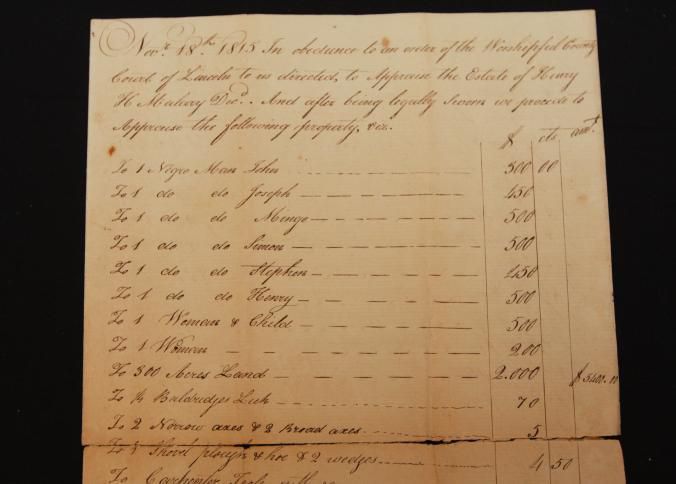 Novr. 18th. 1815 In obedience to an order of the Worshipful County
Court of Lincoln to us directed, to Appraise the Estate of Henry
H Decd.. And after being legally Sworn we procede to
Appraise the following property, viz.
$ cts amt
To 1 Negro Man John 500 00
To 1 do do Joseph 450
To 1 do do Mingo 500
To 1 do do Simon 500
To 1 do do Stephen 450
To 1 do do Henry 500
To 1 Woman & Child 500
To 1 Woman 200
To 300 Acres Land 2.000 $
To 70
To 2 Norrow axes & 2 Broad axes 5
To 1 Shovel plough & hoe & 2 wedges 4 50
To Carpenter Tools